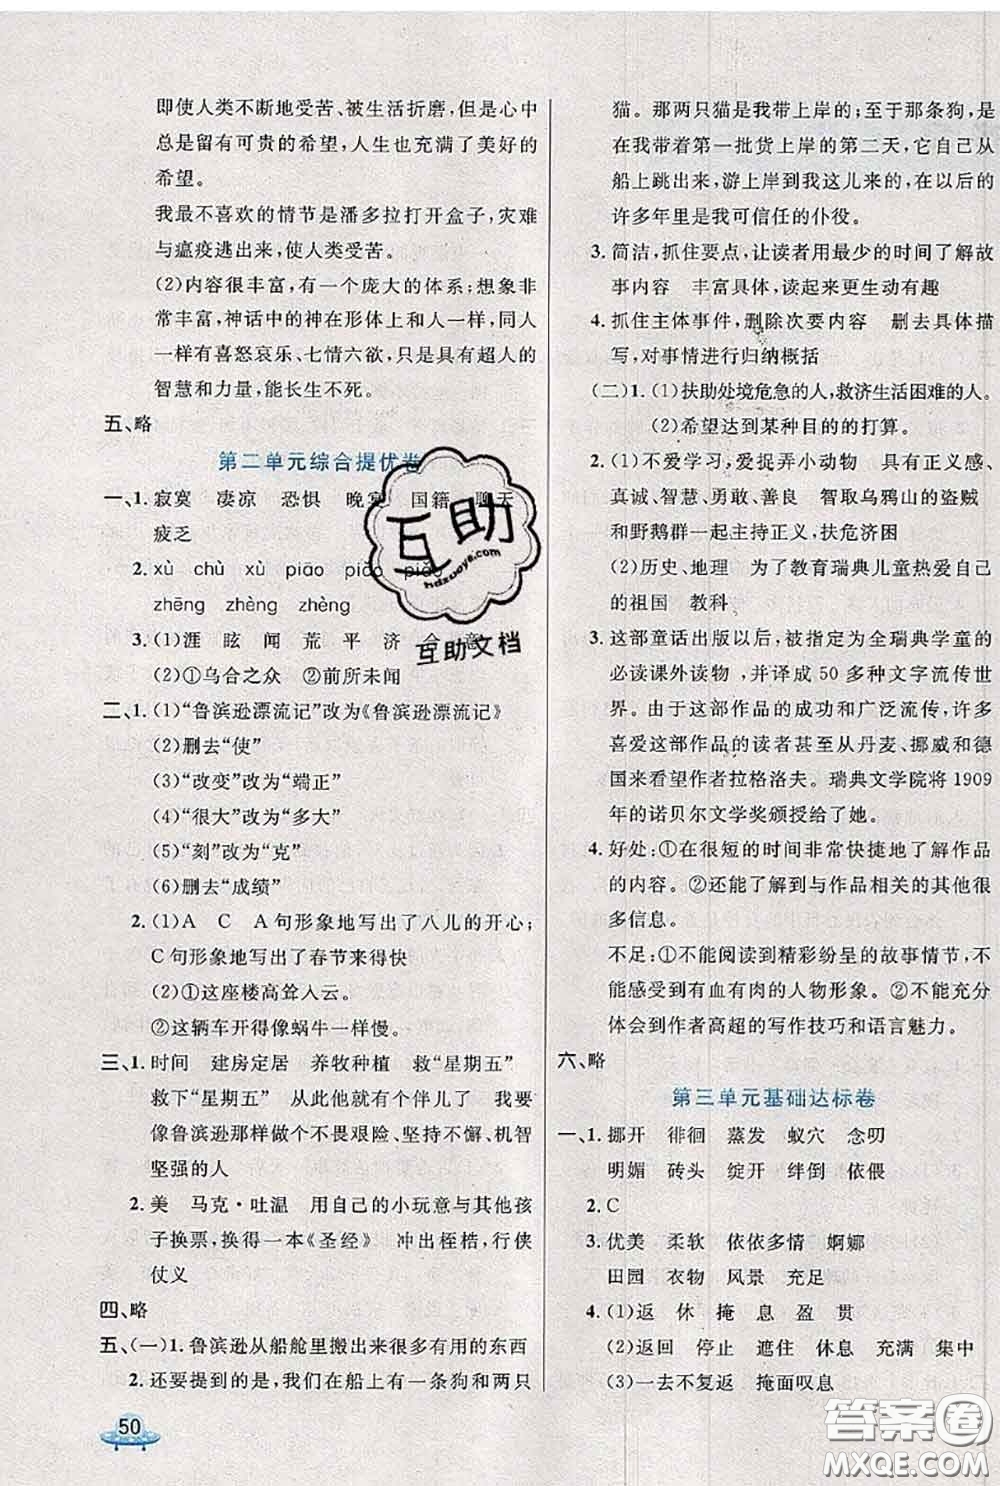 即使人类不断地受苦、被生活折磨,但是心中
总是留有可贵的希望,人生也充满了美好的
希望。
我最不喜欢的情节是潘多拉打开盒子,灾难
与瘟疫逃出来,使人类受苦。
(2)内容很丰富,有一个庞大的体系;想象非
常丰富,神话中的神在形体上和人一样,同人
一样有喜怒哀乐、七情六欲,只是具有超人的
智慧和力量,能长生不死。
五、略
第二单元综合提优卷
一、1. 寂寞 凄凉 恐惧 晚宴 国籍 聊天
疲乏
2. xù chù xù piāo piáo piǎo
zhēng zhèng zhèng
3. (1)涯 眩 闻 荒 平 济 合 意
(2)①乌合之众 ②前所未闻
二、1. (1)“鲁滨逊漂流记”改为《鲁滨逊漂流记》
(2)删去“使”
(3)“改变”改为“端正”
(4)“很大”改为“多大”
(5)“刻”改为“克”
(6)删去“成绩”
2. (1)A C A句形象地写出了八儿的开心;
C句形象地写出了春节来得快
(2)①这座楼高耸入云。
②这辆车开得像蜗牛一样慢。
三、1. 时间 建房定居 养牧种植 救“星期五”
救下“星期五” 从此他就有个伴儿了 我要
像鲁滨逊那样做一个不畏艰险、坚持不懈、机智
坚强的人
2. 美 马克·吐温 用自己的小玩意与其他孩
子换票,换得一本《圣经》 冲出桎梏,行侠
仗义
四、略
五、(一)1. 鲁滨逊从船舱里搬出来很多有用的东西
2. 还要提到的是,我们在船上有一条狗和两只
50
猫。那两只猫是我带上岸的;至于那条狗,是
在我带着第一批货上岸的第二天,它自己从
船上跳出来,游上岸到我这儿来的,在以后的
许多年里是我可信任的仆役。
3. 简洁,抓住要点,让读者用最少的时间了解故
事内容 丰富具体,读起来更生动有趣
4. 抓住主体事件,删除次要内容 删去具体描
写,对事情进行归纳概括
(二)1. (1)扶助处境危急的人,救济生活困难的人。
(2)希望达到某种目的的打算。
2. (1)不爱学习,爱捉弄小动物 具有正义感、
真诚、智慧、勇敢、善良 智取乌鸦山的盗贼
和野鹅群一起主持正义,扶危济困
(2)历史、地理 为了教育瑞典儿童热爱自己
的祖国 教科
3. 这部童话出版以后,被指定为全瑞典学童的
必读课外读物,并译成50多种文字流传世
界。由于这部作品的成功和广泛流传,许多
喜爱这部作品的读者甚至从丹麦、挪威和德
国来看望作者拉格洛夫。瑞典文学院将1909
年的诺贝尔文学奖颁授给了她。
4. 好处:①在很短的时间非常快捷地了解作品
的内容。②还能了解到与作品相关的其他很
多信息。
不足:①不能阅读到精彩纷呈的故事情节,不
能感受到有血有肉的人物形象。②不能充分
体会到作者高超的写作技巧和语言魅力。
六、略
第三单元基础达标卷
一、1. 挪开 徘徊 蒸发 蚁穴 念叨
明媚 砖头 绽开 绊倒 依偎
2. C
3. 优美 柔软 依依多情 婀娜
田园 衣物 风景 充足
4. (1)返 休 掩 息 盈 贯
(2)返回 停止 遮住 休息 充满 集中
(3)一去不复返 掩面叹息
互助
hdzuoye.com
互助文档
答案圈
MXQE.COM